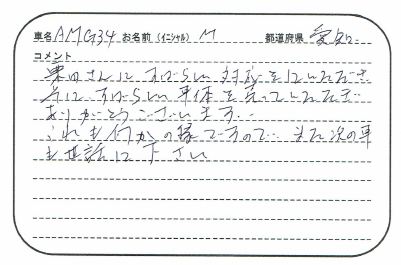 車名 AMG34 お名前 (イニシャル) M 都道府県 愛知
コメント
栗田さんに すばらしい 対応をしていただき
本に すばらしい 車体を売っていただき
ありがとうございます。
これも何かの縁ですので… また次の車
も世話に下さい